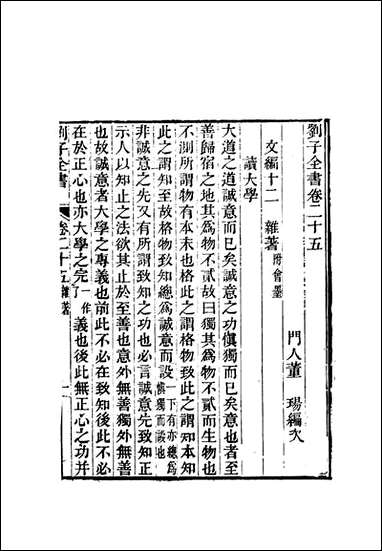 劉子全書卷二十五
門人董瑒編次
文編十二　雜著附會墨
讀大學
大道之道誠意而已矣誠意之功愼獨而已矣意也者至
善歸宿之地其爲物不貳故曰獨其爲物不貳而生物也
不測所謂物有本末也格此之謂格物致此之謂知本知
此之謂知至故格物致知總爲誠意而設一下有亦總爲愼獨而設也
非誠意之先又有所謂致知之功也必言誠意先致知正
示人以知止之法欲其止於至善也意外無善獨外無善
也故誠意者大學之專義也前此不必在致知後此不必
在於正心也亦大學之完一作了義也後此無正心之功并
劉子全書　卷二十五雜著　一